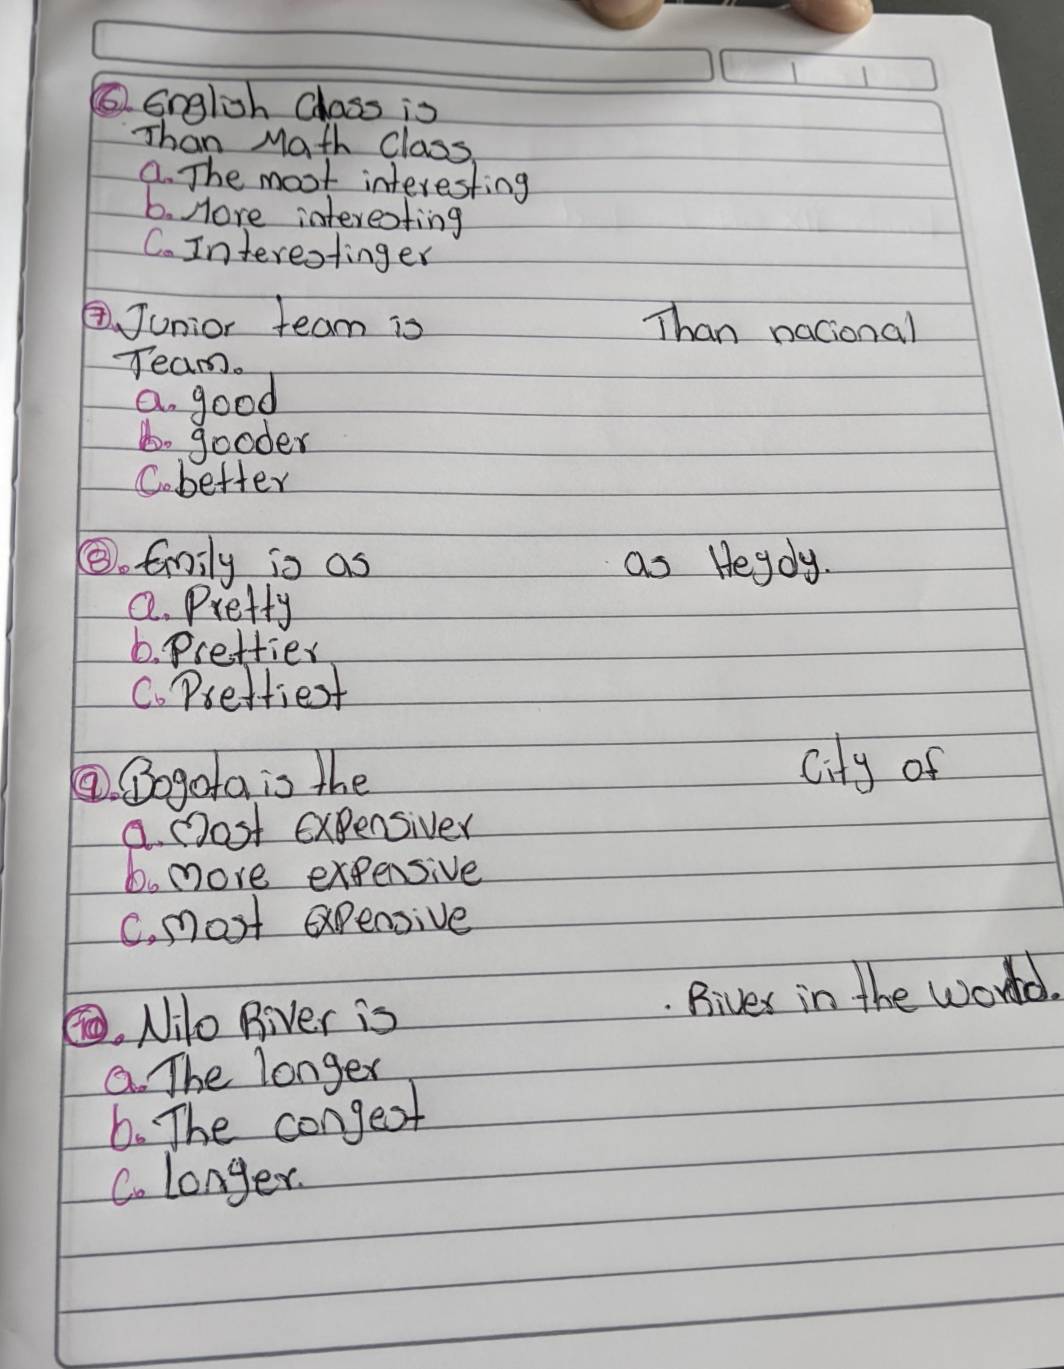 6. English Class is
Than Math Class
a. The most interesting
b. More interesting
C. Interestinger
7. Junior team is Than nacional
Team.
a. good
b. gooder
C. better
8. Emily is as as Heydy.
a. Pretty
b. Prettier
C. Prettiest
9. Bogota is the City of
a. Most expensiver
b. more expensive
C. most expensive
10. Nilo River is . River in the world.
a. The longer
b. The congest
C. longer.